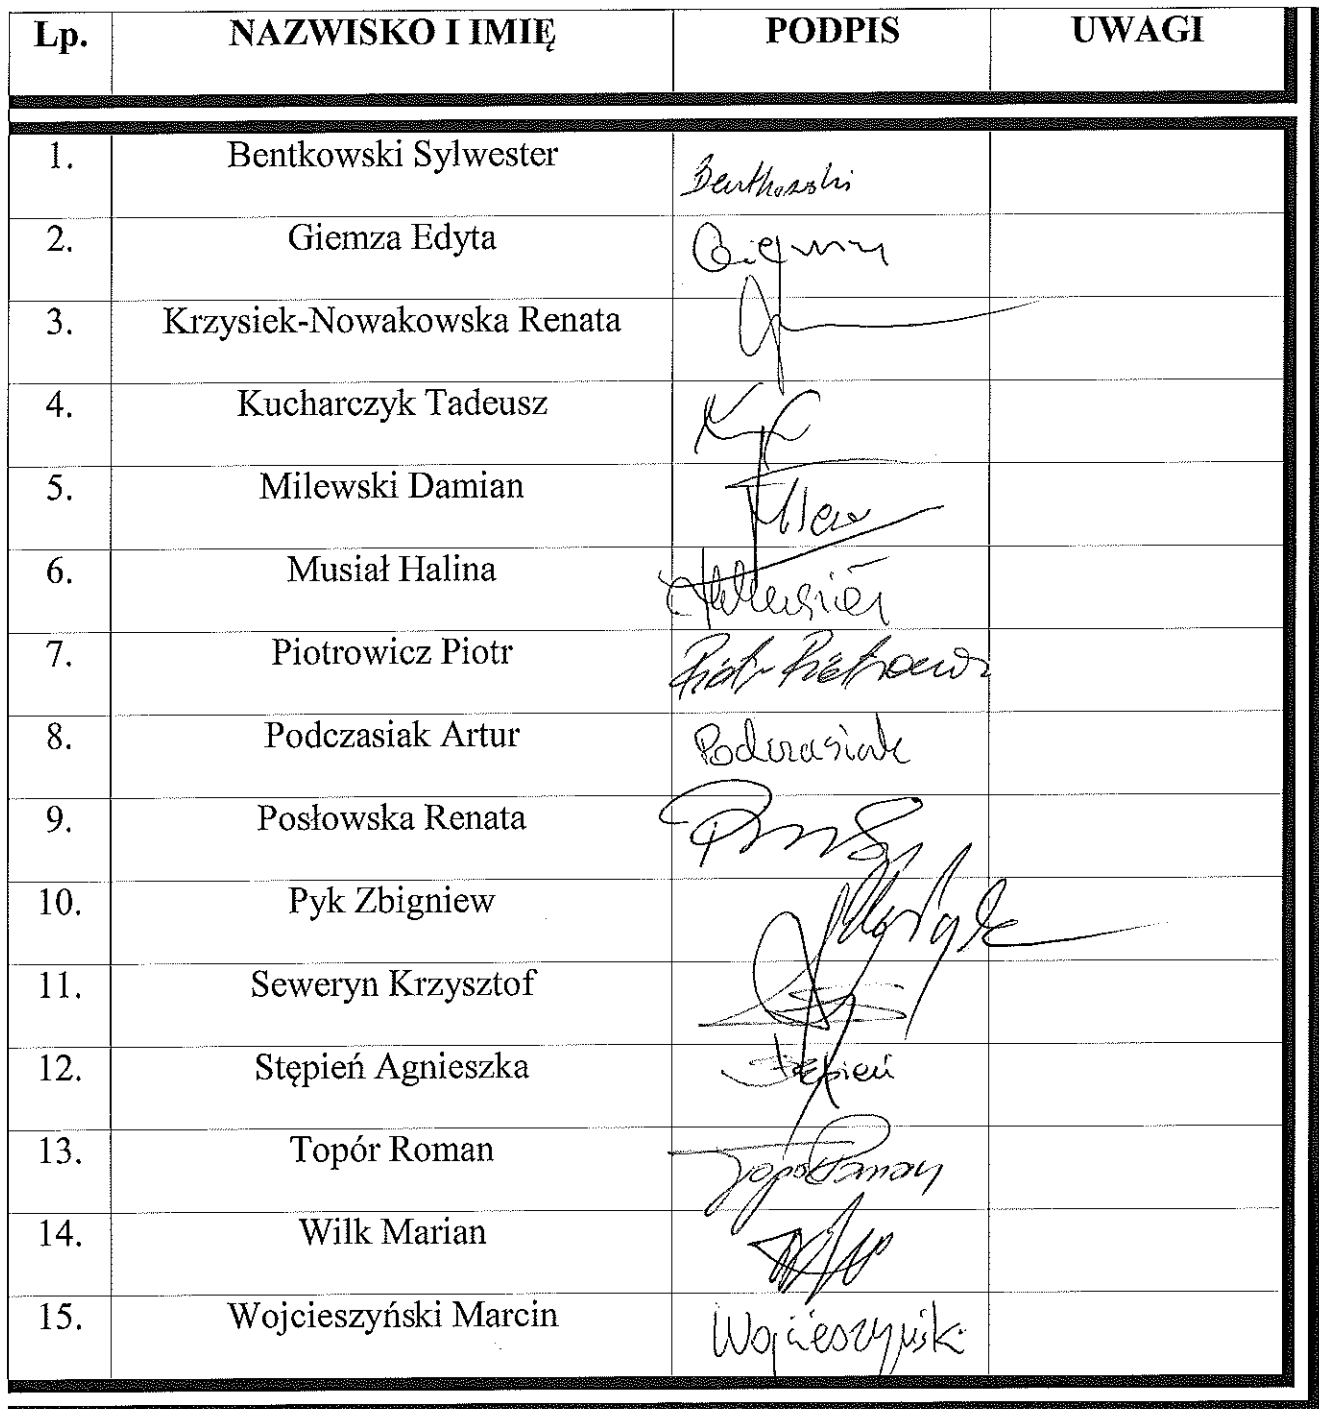 Lp. NAZWISKO I IMIĘ PODPIS UWAGI
1. Bentkowski Sylwester Bentkowski
2. Giemza Edyta
3. Krzysiek-Nowakowska Renata
4. Kucharczyk Tadeusz
5. Milewski Damian
6. Musiał Halina
7. Piotrowicz Piotr Piotr
8. Podczasiak Artur Podczasiak
9. Posłowska Renata
10. Pyk Zbigniew
11. Seweryn Krzysztof
12. Stępień Agnieszka Stępień
13. Topór Roman Topór Roman
14. Wilk Marian
15. Wojcieszyński Marcin Wojcieszyński